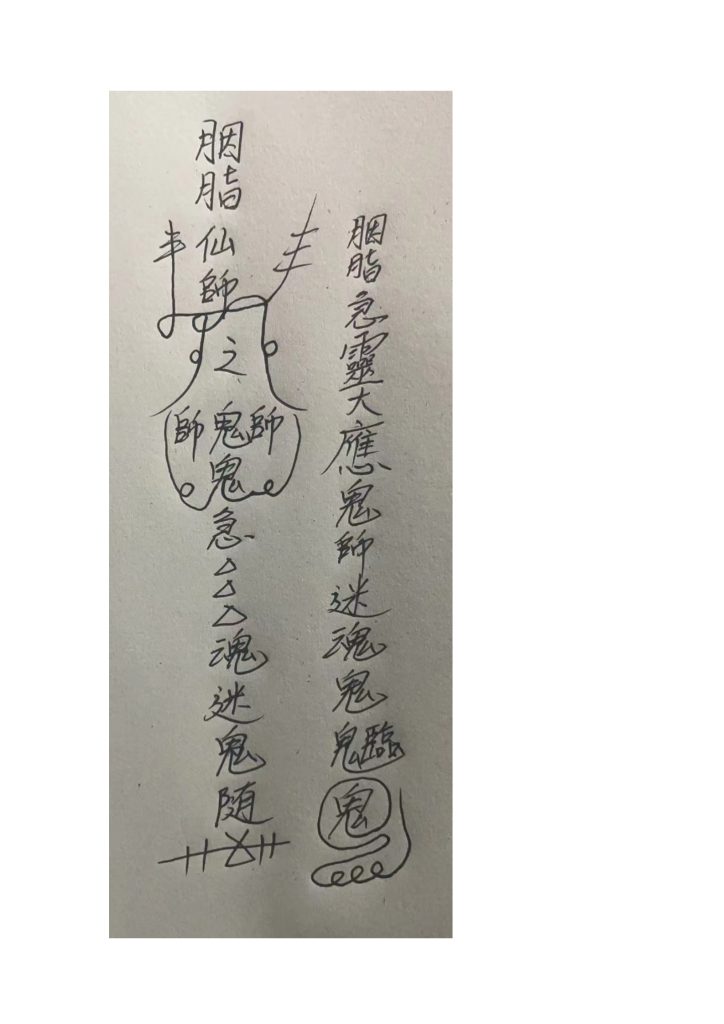 胭脂急靈大應鬼師迷魂鬼鬼臨鬼
胭脂仙師之師鬼師鬼急魂迷鬼随